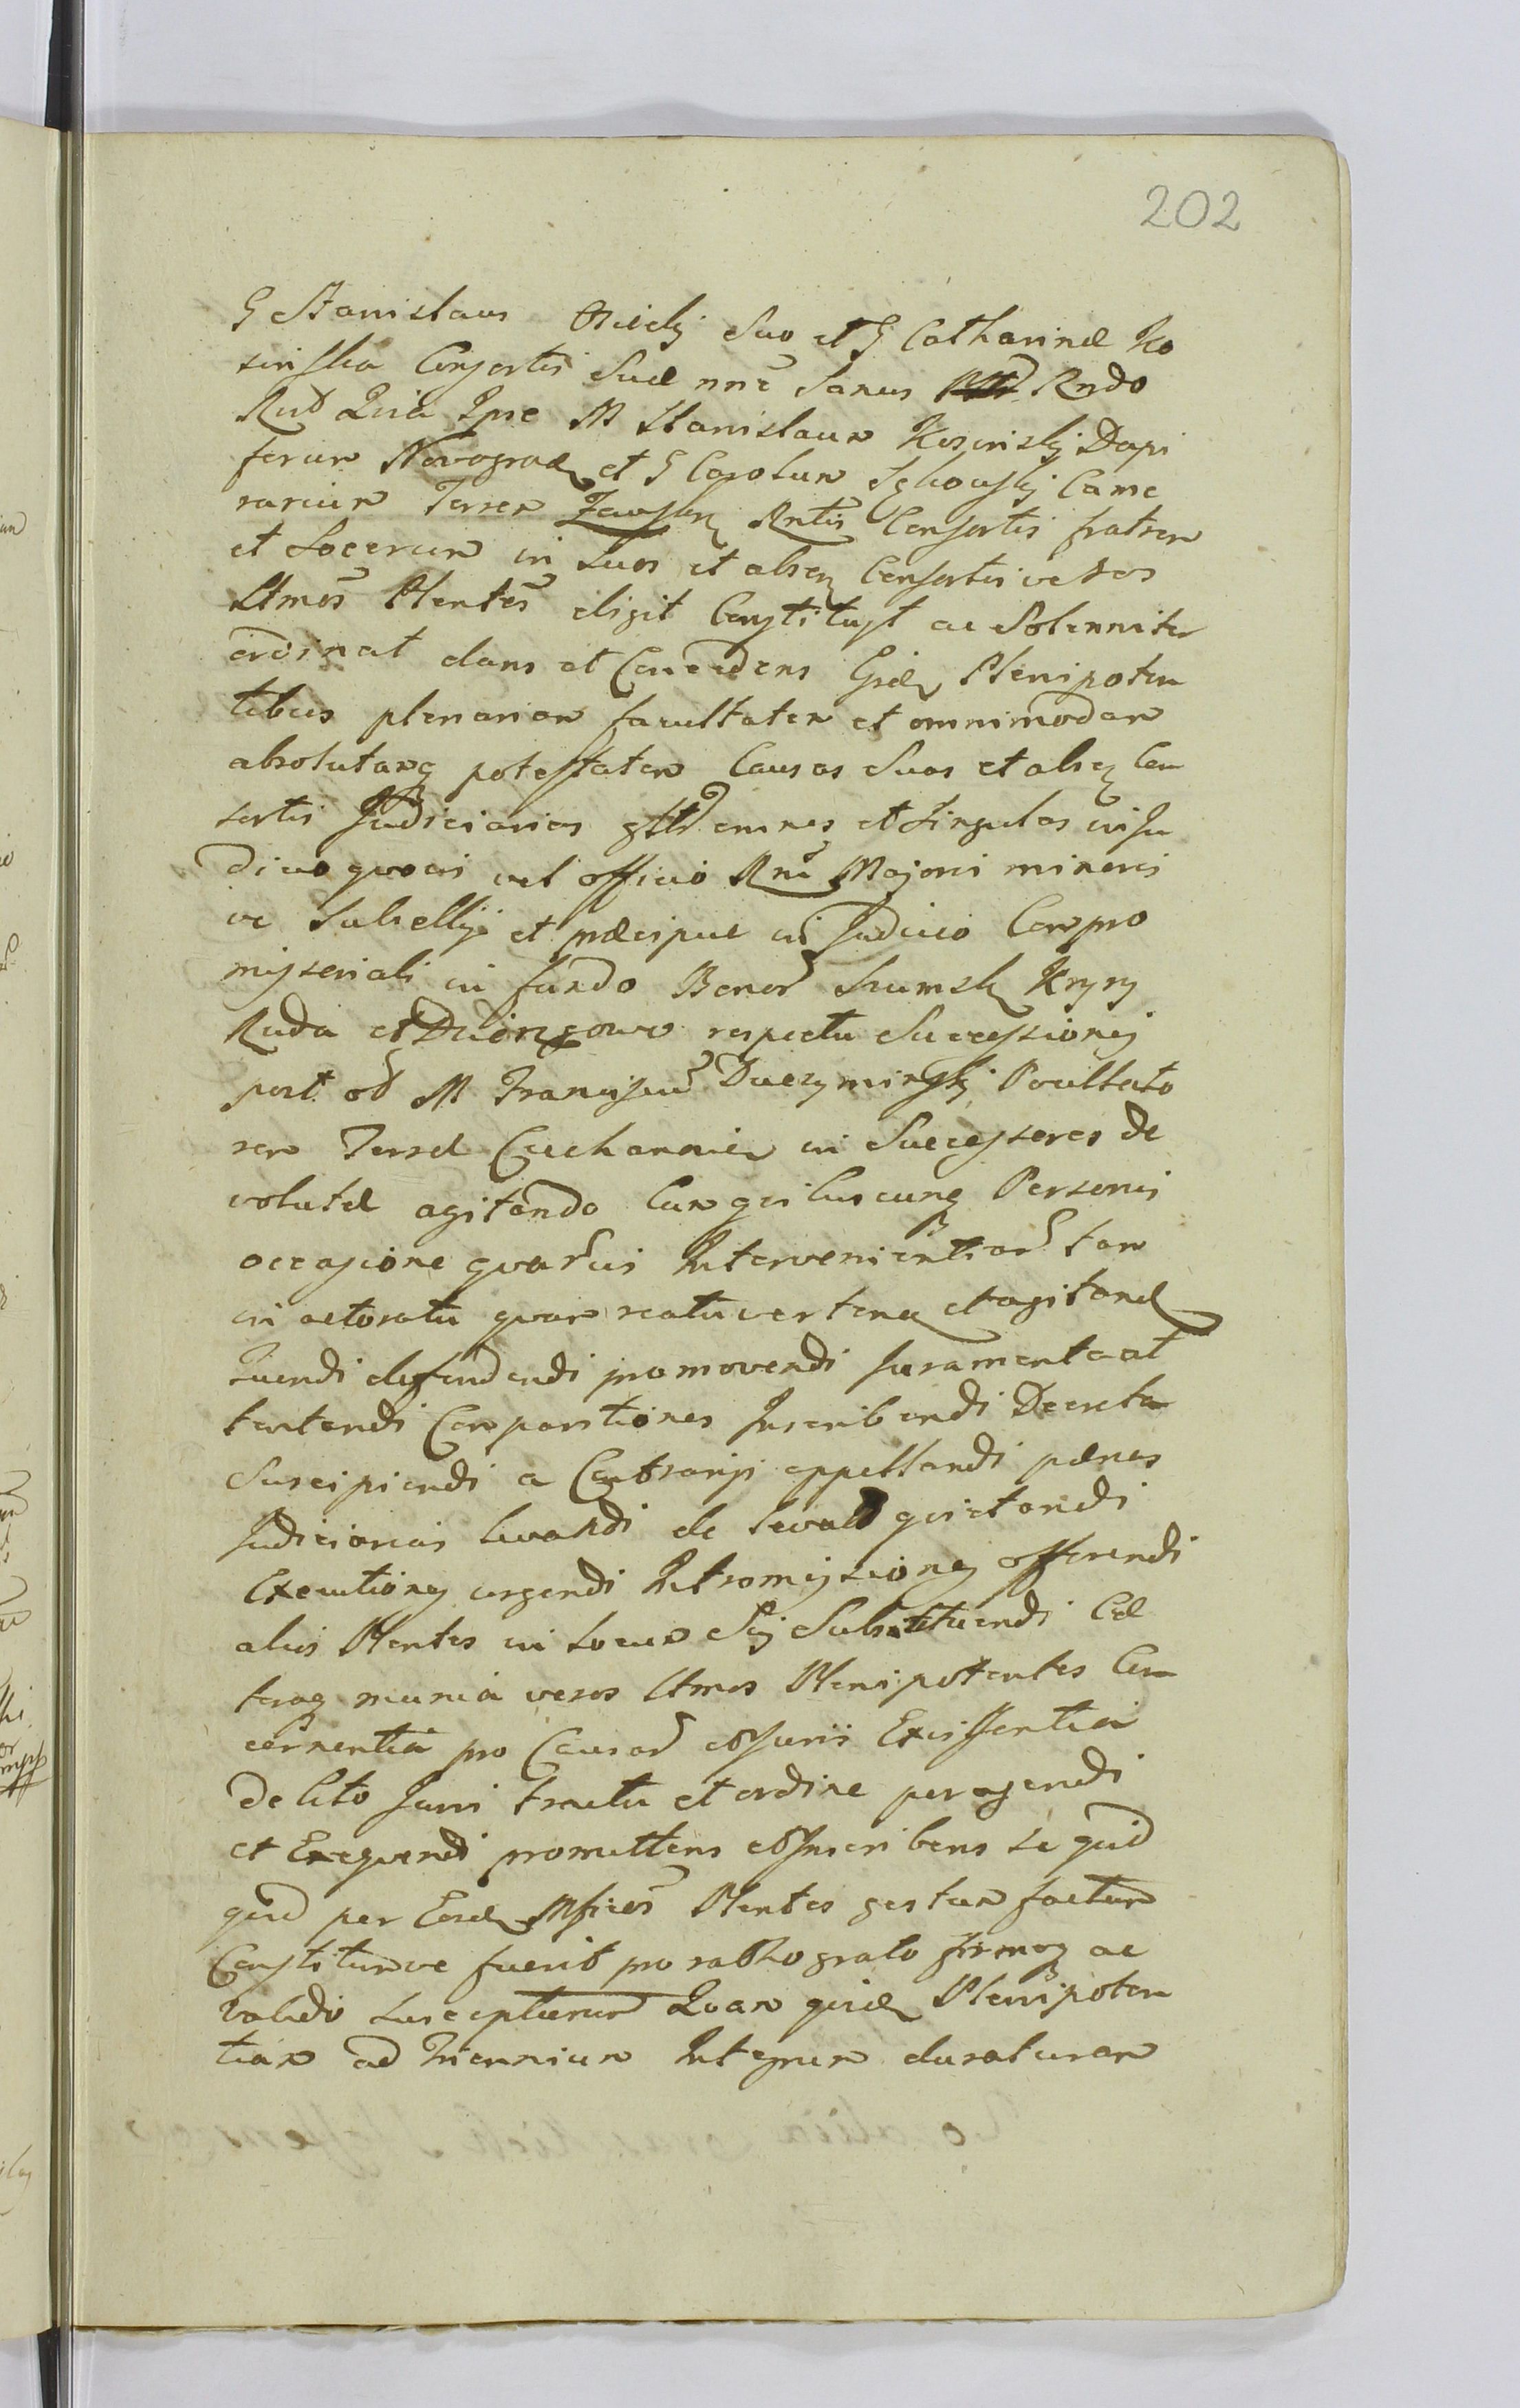 202
G Stanislaus Osiecky Suo et G Catharinæ Ko
sinska Consortis Suæ nne Sanus Rndo
Rndt Quia Ipse M Stanislaum Kosinsky Dapi
ferum Novograd et G Carolum Came
rarium Terræ Rntis Consortis fratrem
et Socerum in Suos et absen Consortis veros
Ltmos Plentes eligit Constituit ac Solenniter
ordinat dans et Concedens Gsd Plenipoten
tibus plenariam facultatem et omnimodam
absolutamq potestatem Causas Suas et absen Con
sortis Judiciarias omnes et Singulas in Ju
dicio quovis vel officio Rni Majori minoris
ve Subsellij et præcipue in Judicio Compro
missoriali in fundo Bonor Szumsk Kryry
Ruda et respectu Successionis
post od M Francisum Duczyminsky Pocillato
rem Terræ Ciechanovien in Successores de
volutæ agitando Cum quibuscunq Personis
occasione quarvis Intervenientiar tam
in actoratu quam reatu verten et agitand
Tuendi defendendi promovendi Juramenta at
tentandi Comparitiones Inscribendi Decreta
Suscipiendi a Contrarijs appellandi pænas
Judiciarias luandi de levat quietandi
Executiones urgendi Intromissiones offerendi
alios Plentes in Locum Sui Substituendi Cæ
teraq munia veros Ltmos Plenipotentes Con
cernentia pro Causar et Juris Existentia
debito Juris tractu et ordine peragendi
et Exequendi promittens et Inscribens se quid
quid per Eosd Mficos Plentes gestum factum
Constitumve fuerit pro ratho grato firmoq ac
valido suscepturum Quam quid Plenipoten
tiam ad Triennium Integrum duraturam